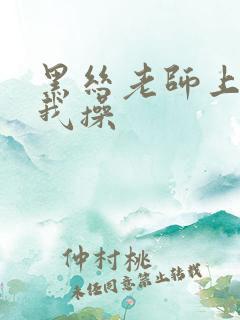 黑丝老師上
我操
仲村桃
未经同意禁止转载